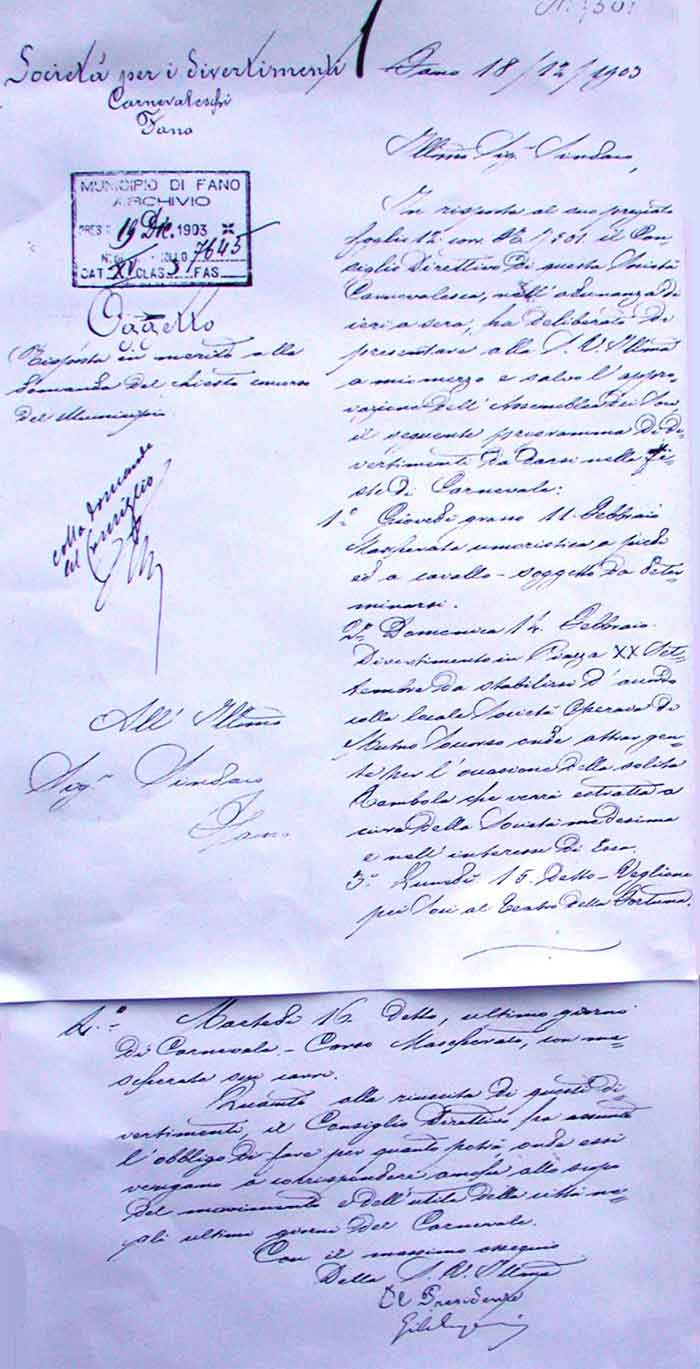 N. 7501
Società per i divertimenti
Carnevaleschi
Fano
Fano 18/12/1903
MUNICIPIO DI FANO
ARCHIVIO
PRES. 19 Dic. 1903
7645
CAT. XV CLAS. 5 FAS.
Oggetto
Risposta in merito alla
domanda del chiesto concorso
del Municipio
colla domanda
All' Illmo
Sigr Sindaco
Fano
Illmo Sigr Sindaco,
In risposta al suo pregiato
foglio 12 con. N. 7501. il Con-
siglio Direttivo di questa Società
Carnevalesca, nell' adunanza di
ieri a sera, ha deliberato di
presentare alla S. V. Illma
a mio mezzo e salvo l' appro-
vazione dell' Assemblea dei Soci,
il seguente programma di di-
vertimenti da darsi nelle Fe-
ste di Carnevale:
1º Giovedì grasso 11. Febbraio
Mascherata umoristica a piedi
ed a cavallo - soggetto da deter-
minarsi.
2º Domenica 14. Febbraio.
Divertimento in Piazza XX Set-
tembre da stabilirsi d' accordo
colla locale Società Operaia di
Mutuo Soccorso onde attrar gen-
te per l' occasione della solita
Tombola che verrà estratta a
cura della Società medesima
e nell' interesse di Essa.
3º Lunedì 15. detto - Veglione
pei Soci al Teatro della Fortuna.
4º Martedì 16. detto, ultimo giorno
di Carnevale - Corso Mascherato, con ma-
scherate su carri.
Quanto alla riuscita di questi di-
vertimenti, il Consiglio Direttivo ha assunto
l' obbligo di fare per quanto potrà onde essi
vengano a corrispondere anche allo scopo
del movimento e dell' utile della città ne-
gli ultimi giorni del Carnevale.
Con il massimo ossequio
Della S. V. Illma
Il Presidente